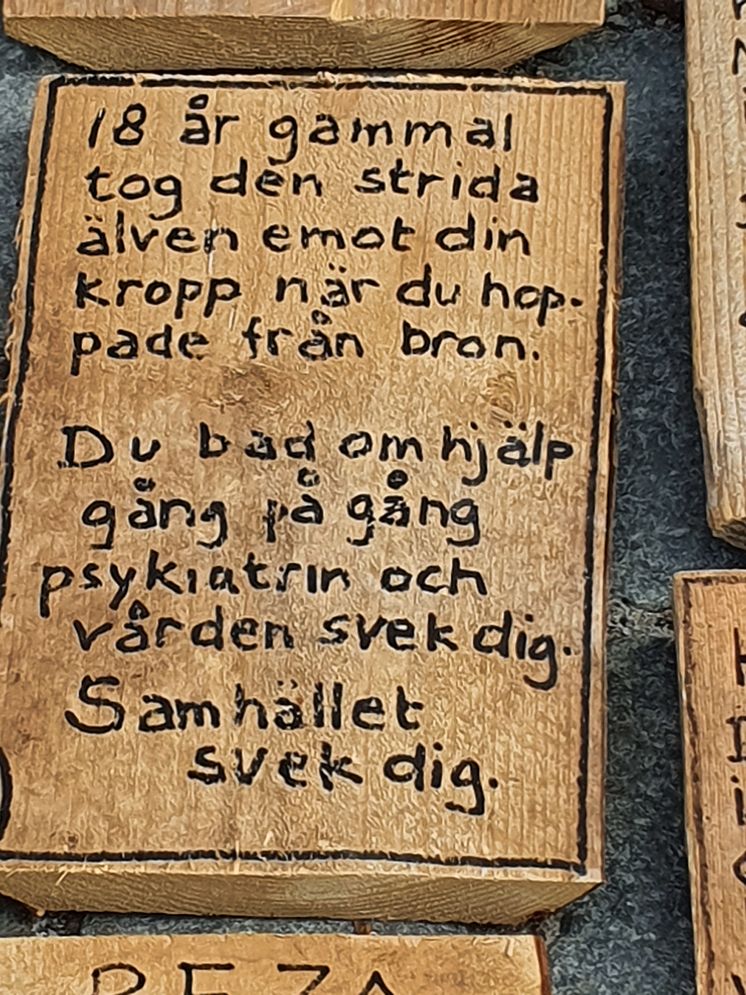 18 år gammal
tog den strida
älven emot din
kropp när du hop-
pade från bron.
Du bad om hjälp
gång på gång
psykiatrin och
vården svek dig.
Samhället
svek dig.
REZA